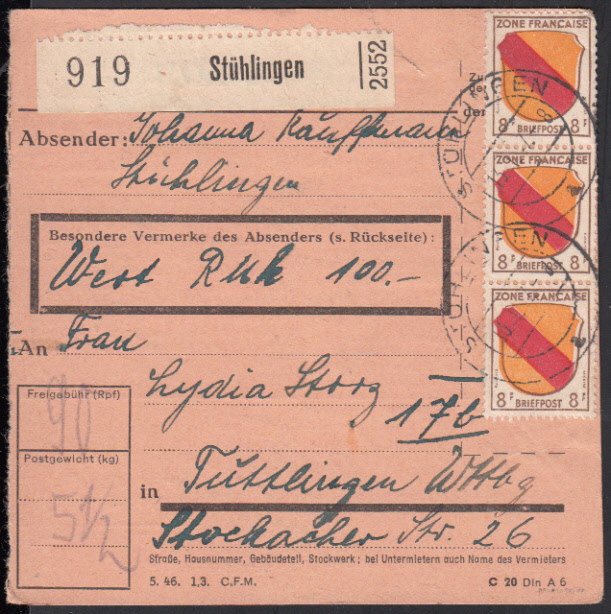 919 Stühlingen 2552
ZONE FRANCAISE
8F BRIEFPOST 8F
ZONE FRANCAISE
8F BRIEFPOST 8F
ZONE FRANCAISE
8F BRIEFPOST 8F
STÜHLINGEN
STÜHLINGEN
der
Absender: Johanna Kauffmann
Stühlingen
Besondere Vermerke des Absenders (s. Rückseite):
Wert RMk 100.-
An Frau
Lydia Storz
17b
Freigebühr (Rpf)
90
Postgewicht (kg)
5 1/2
in Tuttlingen Wttbg
Stockacher Str. 26
Straße, Hausnummer, Gebäudeteil, Stockwerk; bei Untermietern auch Name des Vermieters
5. 46. 1,3. C.F.M.
C 20 Din A 6